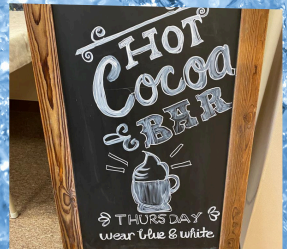 HOT
Cocoa
& BAR
THURSDAY
wear blue & white